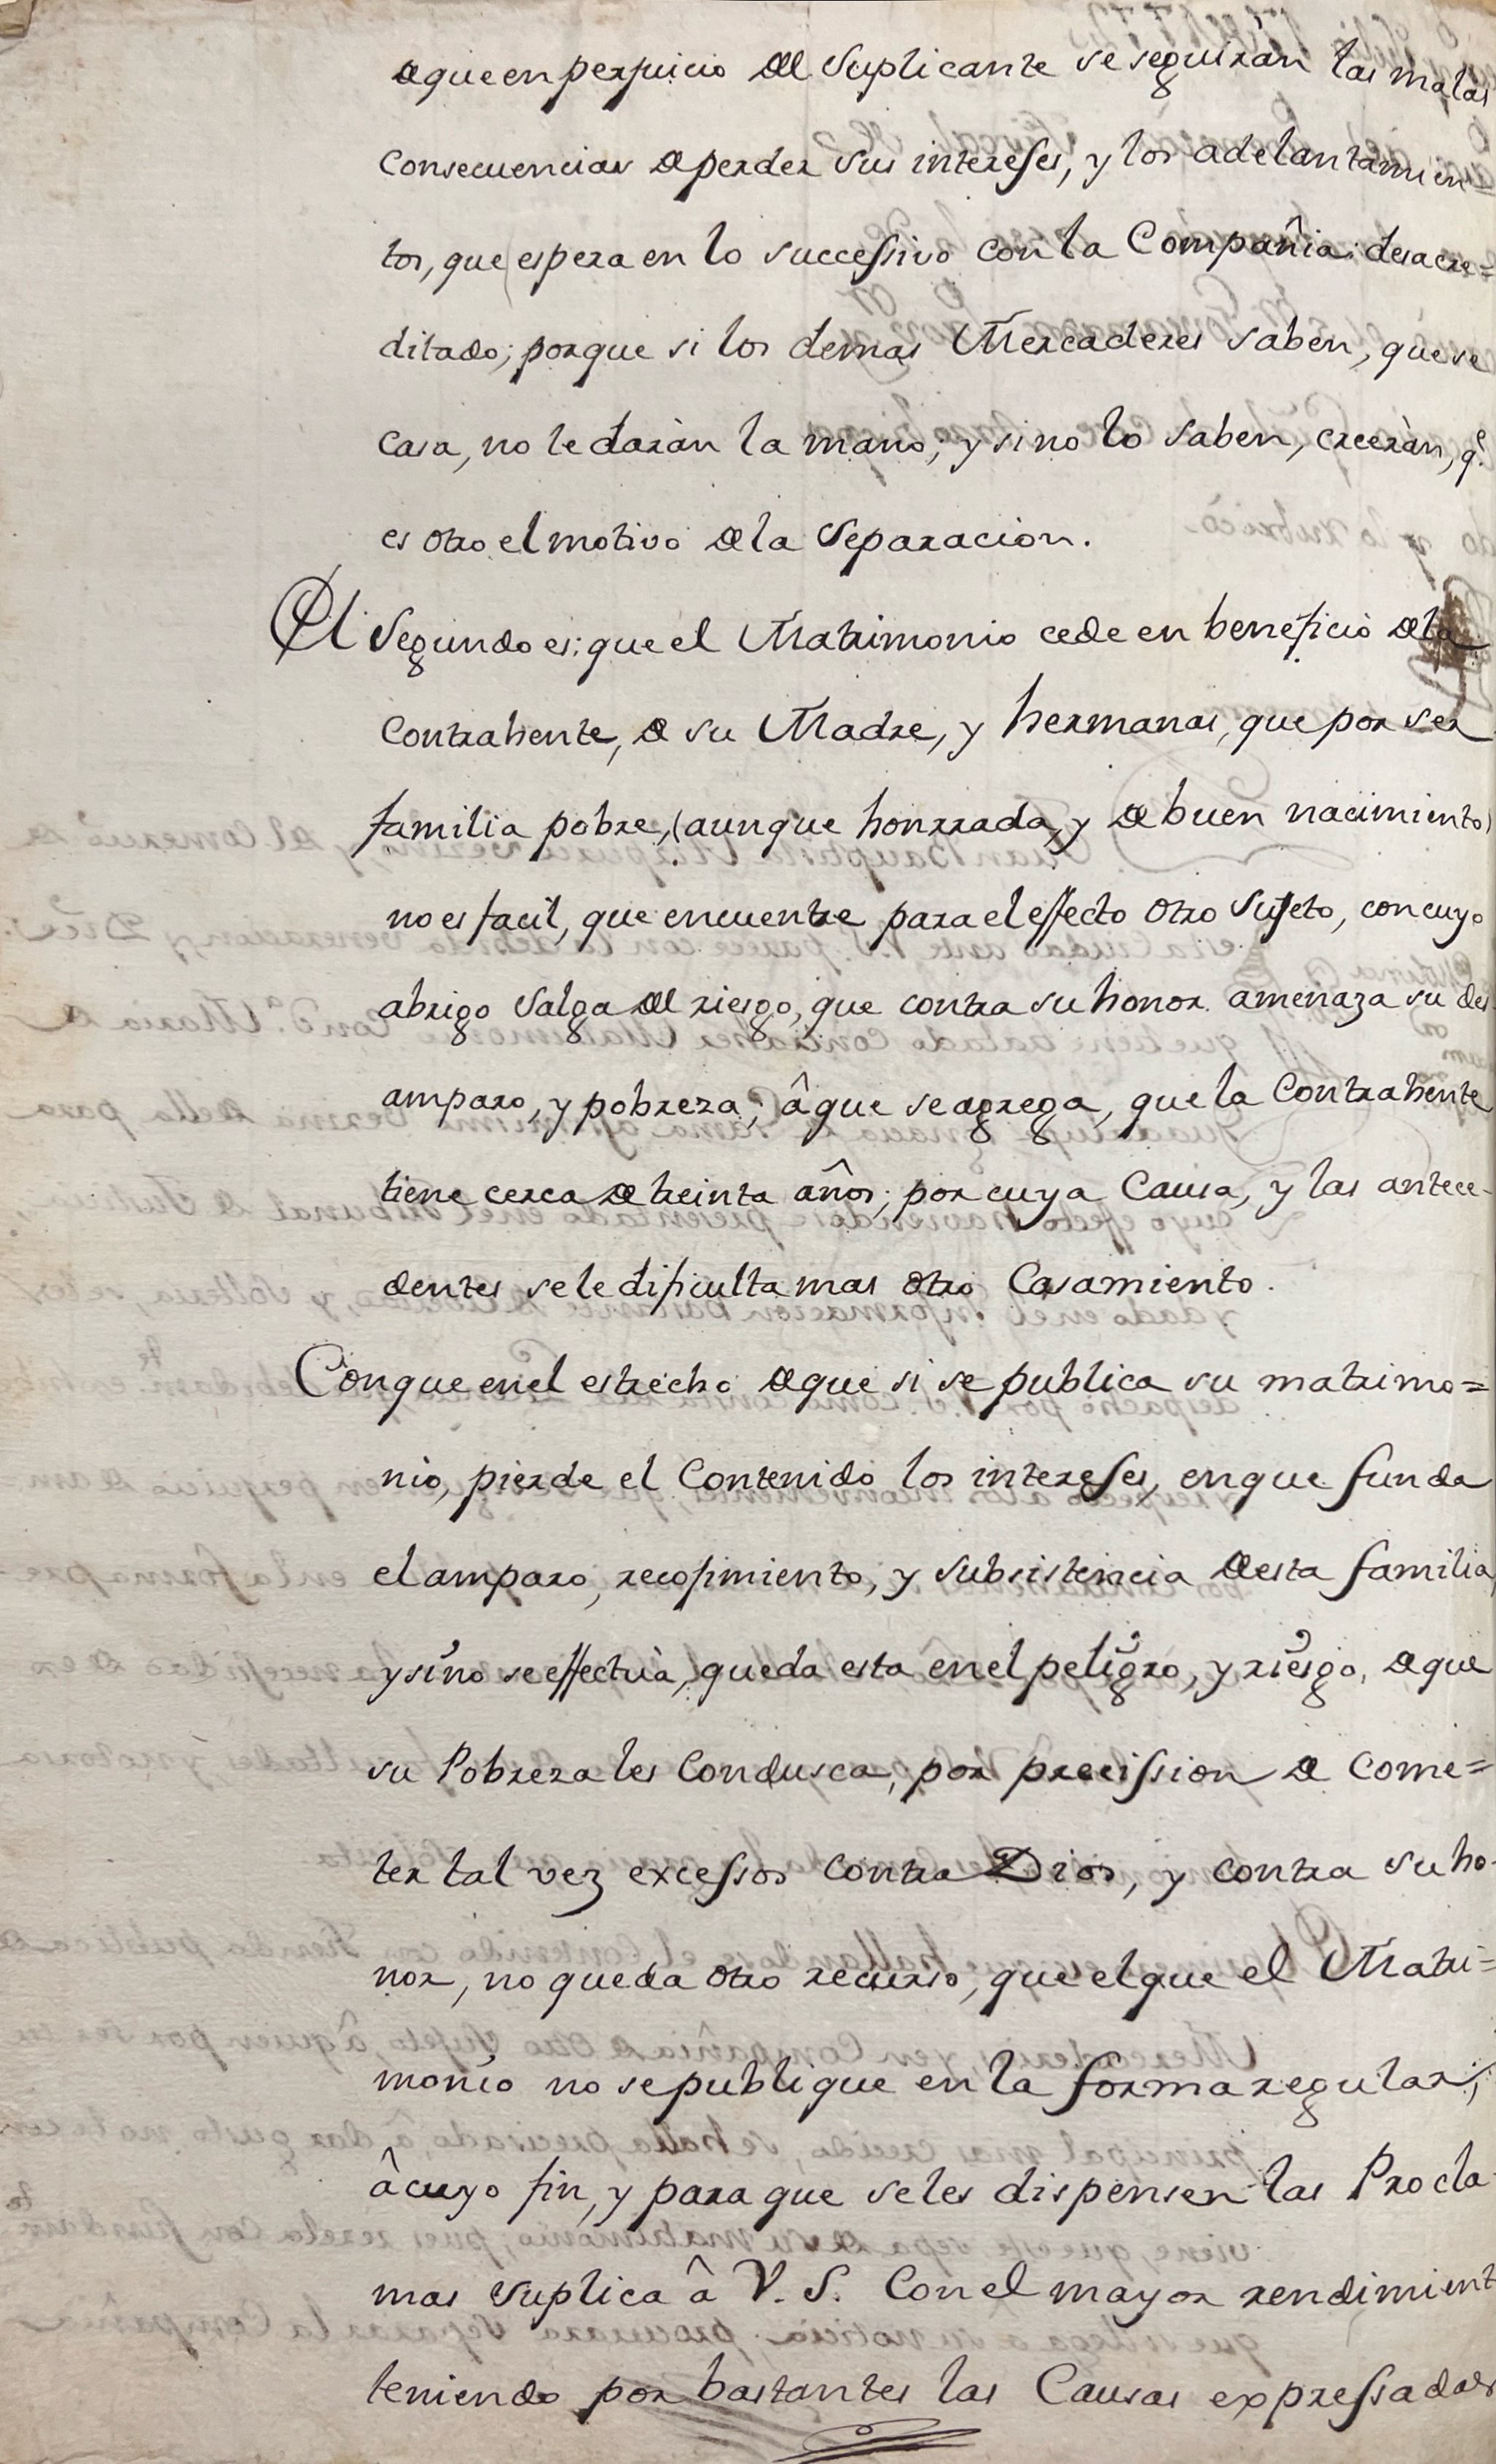 de que en perjuicio del Suplicante se seguiràn las malas
consecuencias de perder sus intereses, y los adelantamien=
tos, que espera en lo successivo con la Compañia: desacre=
ditado; porque si los demas Mercaderes saben, que se
casa, no le daràn la mano; y si no lo saben, creeràn, q.e
es otro el motivo de la Separacion.
El Segundo es: que el Matrimonio cede en beneficio de la
Contrahente, de su Madre, y hermanas, que por ser
familia pobre, (aunque honrrada, y de buen nacimiento)
no es facil, que encuentre para el effecto otro Sujeto, con cuyo
abrigo Salga del riesgo, que contra su honor amenaza su des-
amparo, y pobreza; â que se agrega, que la Contrahente
tiene cerca de treinta años; por cuya Causa, y las antece-
dentes se le dificulta mas otro Casamiento.
Con que en el estrecho de que si se publica su matrimo=
nio, pierde el Contenido los intereses, en que funda
el amparo, recojimiento, y Subsistencia de esta familia,
y si no se effectùa, queda esta en el peligro, y riesgo, de que
su Pobreza les Condusca, por precission de come=
ter tal vez excessos contra Dios, y contra su ho-
nor, no queda otro recurso, que el que el Matri=
monio no se publique en la forma regular;
â cuyo fin, y para que se les dispensen las Procla-
mas Suplica â V. S. Con el mayor rendimient
teniendo por bastantes las Causas expressadas